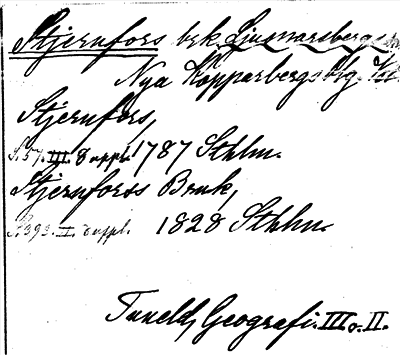 Stjernfors brk. Ljusnarsbergs
Nya Kopparbergs blg.
Stjernfors,
S. 57. III. duppl. 1787 Sthlm.
Stjernforss Bruk,
S. 393. II. duppl. 1828 Sthlm.
Tuneld, Geografi. III o. II.